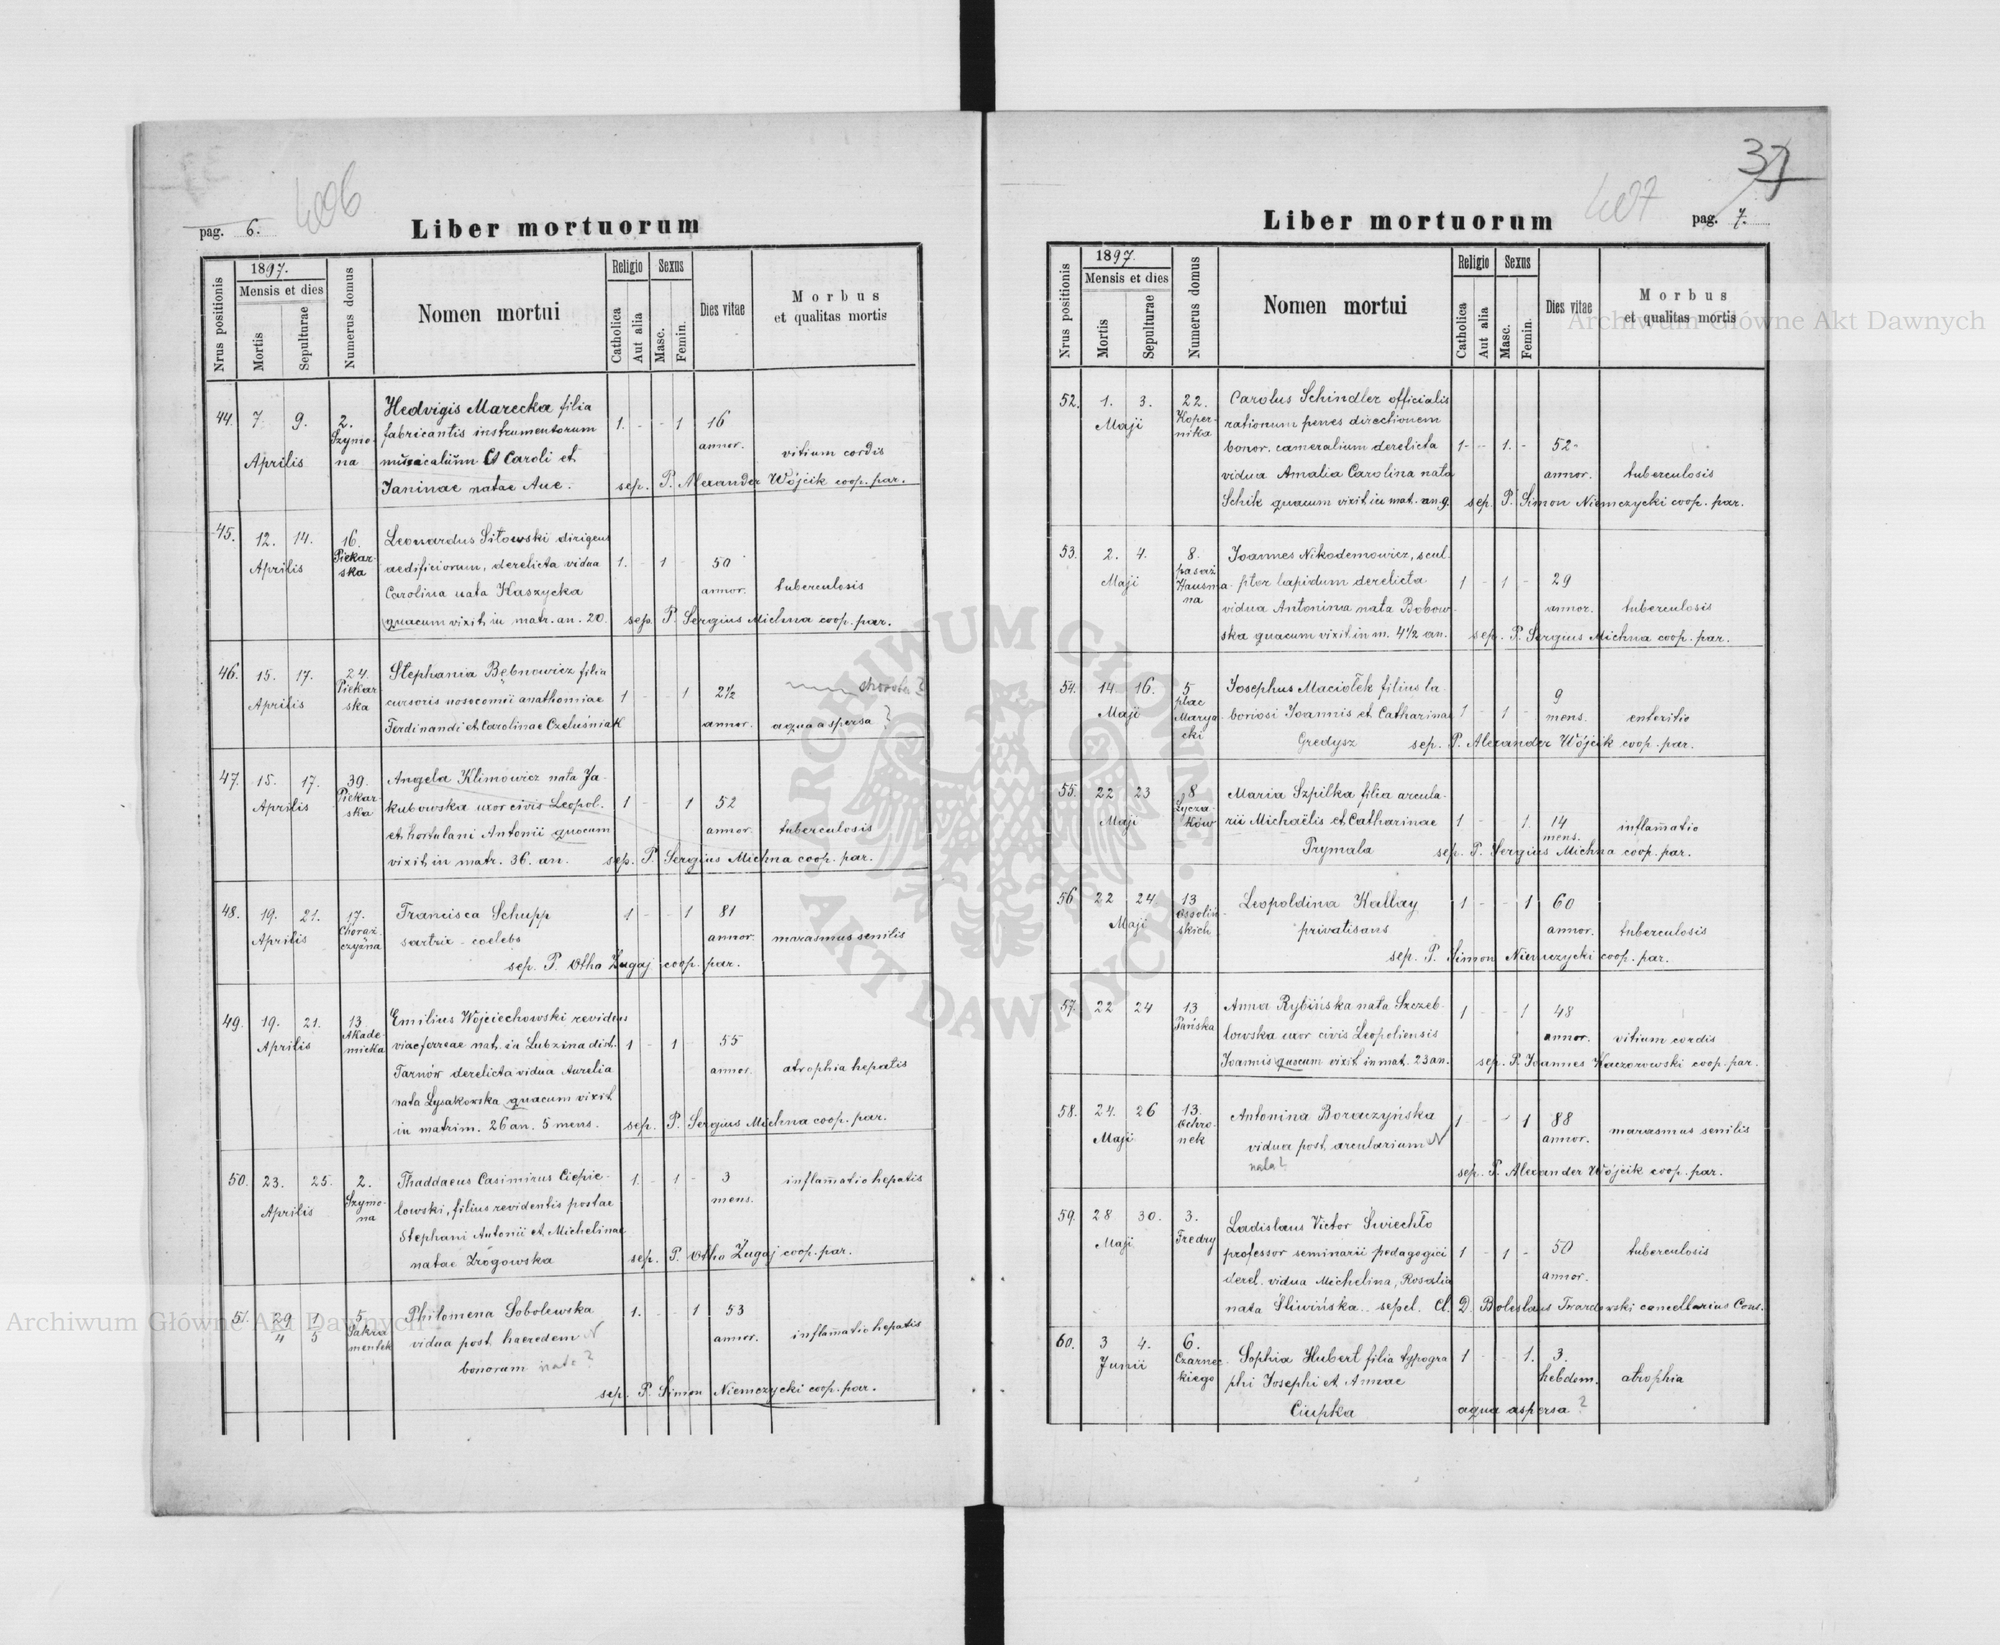 pag. 6.
Liber mortuorum
Nrus positionis
1897.
Mensis et dies
Mortis
Sepulturae
Numerus domus
Nomen mortui
Religio
Catholica
Aut alia
Sexus
Masc.
Femin.
Dies vitae
Morbus
et qualitas mortis
44. 7 9. 2. Hedvigis Marecka filia
Szymo- fabricantis instrumentorum 1. - - 1 16
Aprilis na musicalium Caroli et annor. vitium cordis
Janinae natae Aue. sep. P. Alexander Wójcik coop. par.
45. 12. 14. 16. Leonardus Sitowski dirigens
Aprilis Piekar- aedificiorum, derelicta vidua 1. - 1 - 50
ska Carolina nata Kaszycka annor. tuberculosis
quacum vixit in matr. an. 20. sep. P. Sergius Michna coop. par.
46. 15. 17. 24. Stephania Bębnowicz filia
Aprilis Piekar cursoris nosocomii anathomiae 1 - - 1 2½ choroba?
ska Ferdinandi et Carolinae Czeluśniak annor. aqua aspersa ?
47. 15. 17. 39. Angela Klimowicz nata Ja-
Aprilis Piekar kubowska uxor civis Leopol. 1 - - 1 52
ska et hortulani Antonii quocum annor. tuberculosis
vixit in matr. 36. an. sep. P. Sergius Michna coop. par.
48. 19. 21. 17. Francisca Schupp 1 - - 1 81
Aprilis Chorąż- sartrix - coelebs annor. marasmus senilis
czyzna sep. P. Otho Zugaj coop. par.
49. 19. 21. 13 Emilius Wojciechowski revidens
Aprilis Akade- viae ferreae nat. in Lubzina dist. 1 - 1 - 55
micka Tarnów derelicta vidua Aurelia annor. atrophia hepatis
nata Łysakowska quacum vixit
in matrim. 26 an. 5 mens. sep. P. Sergius Michna coop. par.
50. 23. 25. 2. Thaddaeus Casimirus Ciepie- 1. - 1 - 3 inflammatio hepatis
Aprilis Szymo- lowski, filius revidentis postae mens.
na Stephani Antonii et Michelinae
natae Zrogowska sep. P. Otho Zugaj coop. par.
51. 29 1 5. Philomena Sobolewska 1. - - 1 53
4 5 Sakra vidua post haeredem N annor. inflammatio hepatis
mentek bonorum nata?
sep. P. Simon Niemczycki coop. par.
37
pag. 7.
Liber mortuorum
Nrus positionis
1897.
Mensis et dies
Mortis
Sepulturae
Numerus domus
Nomen mortui
Religio
Catholica
Aut alia
Sexus
Masc.
Femin.
Dies vitae
Morbus
et qualitas mortis
52. 1. 3. 22. Carolus Schindler officialis
Maji Koper- rationum penes directionem
nika bonor. cameralium derelicta 1 - 1. - 52
vidua Amalia Carolina nata annor. tuberculosis
Schik quacum vixit in mat. an. 9. sep. P. Simon Niemczycki coop. par.
53. 2. 4. 8. Joannes Nikodemowicz, scul-
Maji pasaż Hausma- ptor lapidum derelicta 1 - 1 - 29
na vidua Antonina nata Bobow- annor. tuberculosis
ska quacum vixit in m. 4½ an. sep. P. Sergius Michna coop. par.
54. 14. 16. 5 Josephus Maciołek filius la- 9
Maji plac Marya- boriosi Joannis et Catharinae 1 - 1 - mens. enteritio
cki Gredysz sep. P. Alexander Wójcik coop. par.
55. 22 23 8 Maria Szpilka filia arcula-
Maji Łycza- rii Michaëlis et Catharinae 1 - - 1. 14 inflammatio
ków Prymala mens. sep. P. Sergius Michna coop. par.
56 22 24 13 Leopoldina Kallay 1 - - 1 60
Maji Ossoliń- skich privatisans annor. tuberculosis
sep. P. Simon Niemczycki coop. par.
57. 22 24 13 Anna Rybińska nata Szczeb- 1 - - 1 48
Pańska lowska uxor civis Leopoliensis annor. vitium cordis
Joannis quocum vixit in mat. 23 an. sep. P. Joannes Kaczorowski coop. par.
58. 24. 26 13. Antonina Boraczyńska 1 - - 1 88
Maji Ochro- nek vidua post arcularium N annor. marasmus senilis
nata? sep. P. Alexander Wójcik coop. par.
59. 28 30. 3. Ladislaus Victor Świechło
Maji Fredry professor seminarii pedagogici 1 - 1 - 50 tuberculosis
derel. vidua Michelina, Rosalia annor.
nata Śliwińska. sepel. Cl. D. Boleslaus Twardowski cancellarius Cons.
60. 3 4. 6. Sophia Hubert filia typogra 1 - - 1. 3.
Junii Czarnec- kiego phi Josephi et Annae hebdom. atrophia
Ciupka aqua aspersa ?
Archiwum Główne Akt Dawnych
Archiwum Główne Akt Dawnych
ARCHIWUM GŁÓWNE AKT DAWNYCH